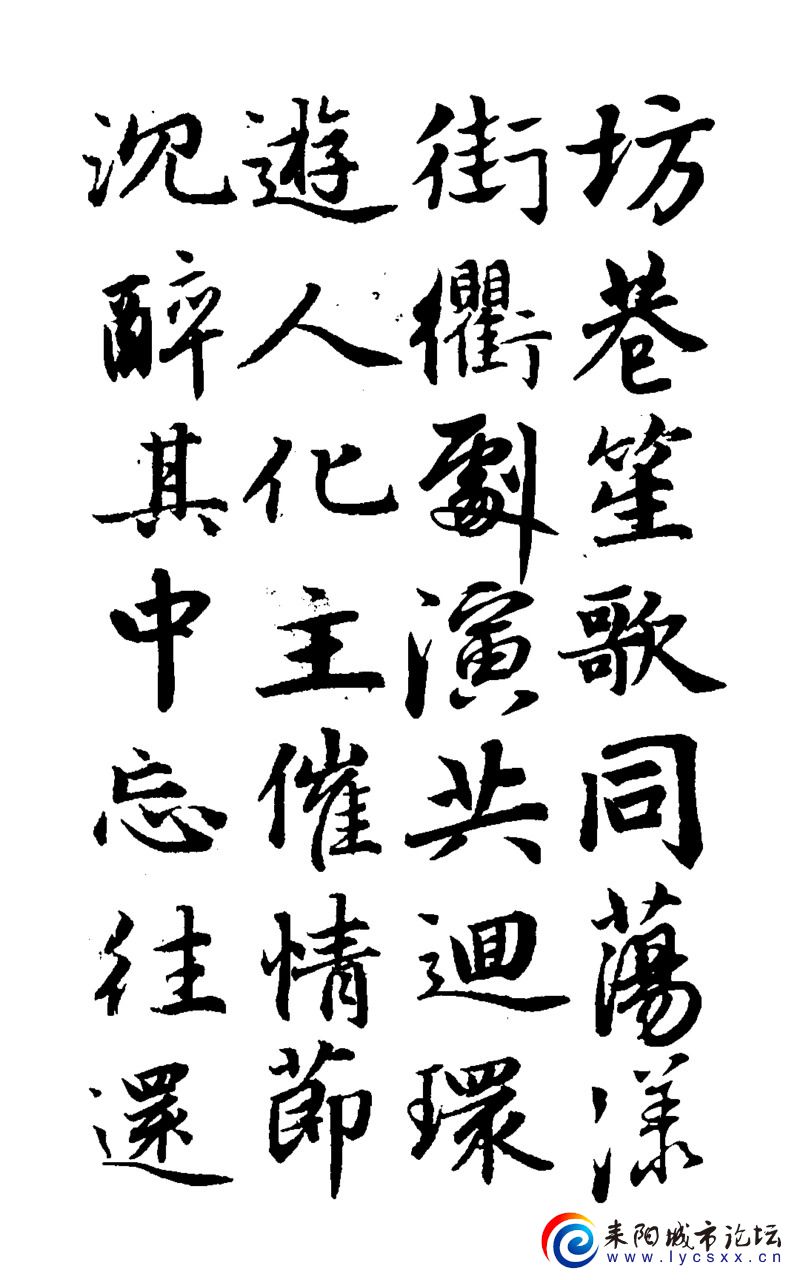 坊巷笙歌同蕩漾
街衢劇演共迴環
遊人化主催情節
沉醉其中忘往還
耒阳城市论坛
www.lycsxx.cn